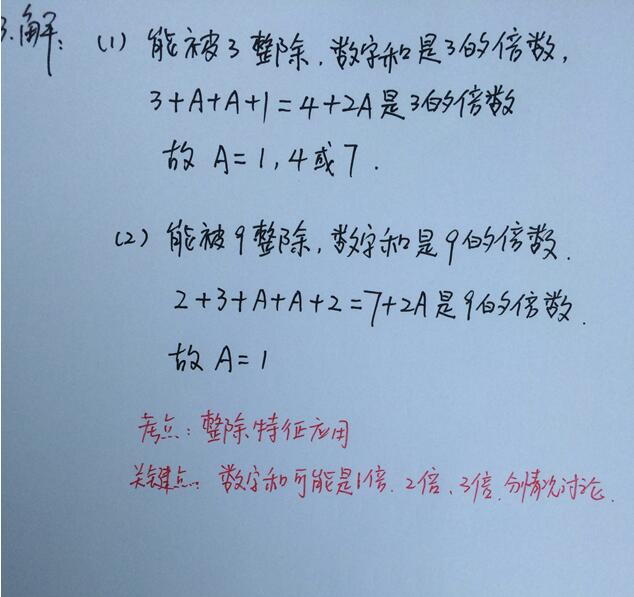 3.解：(1) 能被3整除,数字和是3的倍数,
3+A+A+1=4+2A是3的倍数
故 A=1,4或7.
(2) 能被9整除,数字和是9的倍数.
2+3+A+A+2=7+2A是9的倍数.
故 A=1
考点：整除特征应用
关键点：数字和可能是1倍、2倍、3倍,分情况讨论.